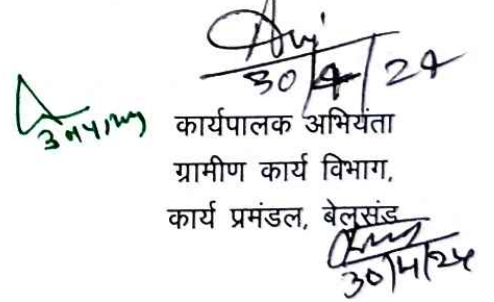 30/4/24
कार्यपालक अभियंता
ग्रामीण कार्य विभाग,
कार्य प्रमंडल, बेलसंड
30/4/24